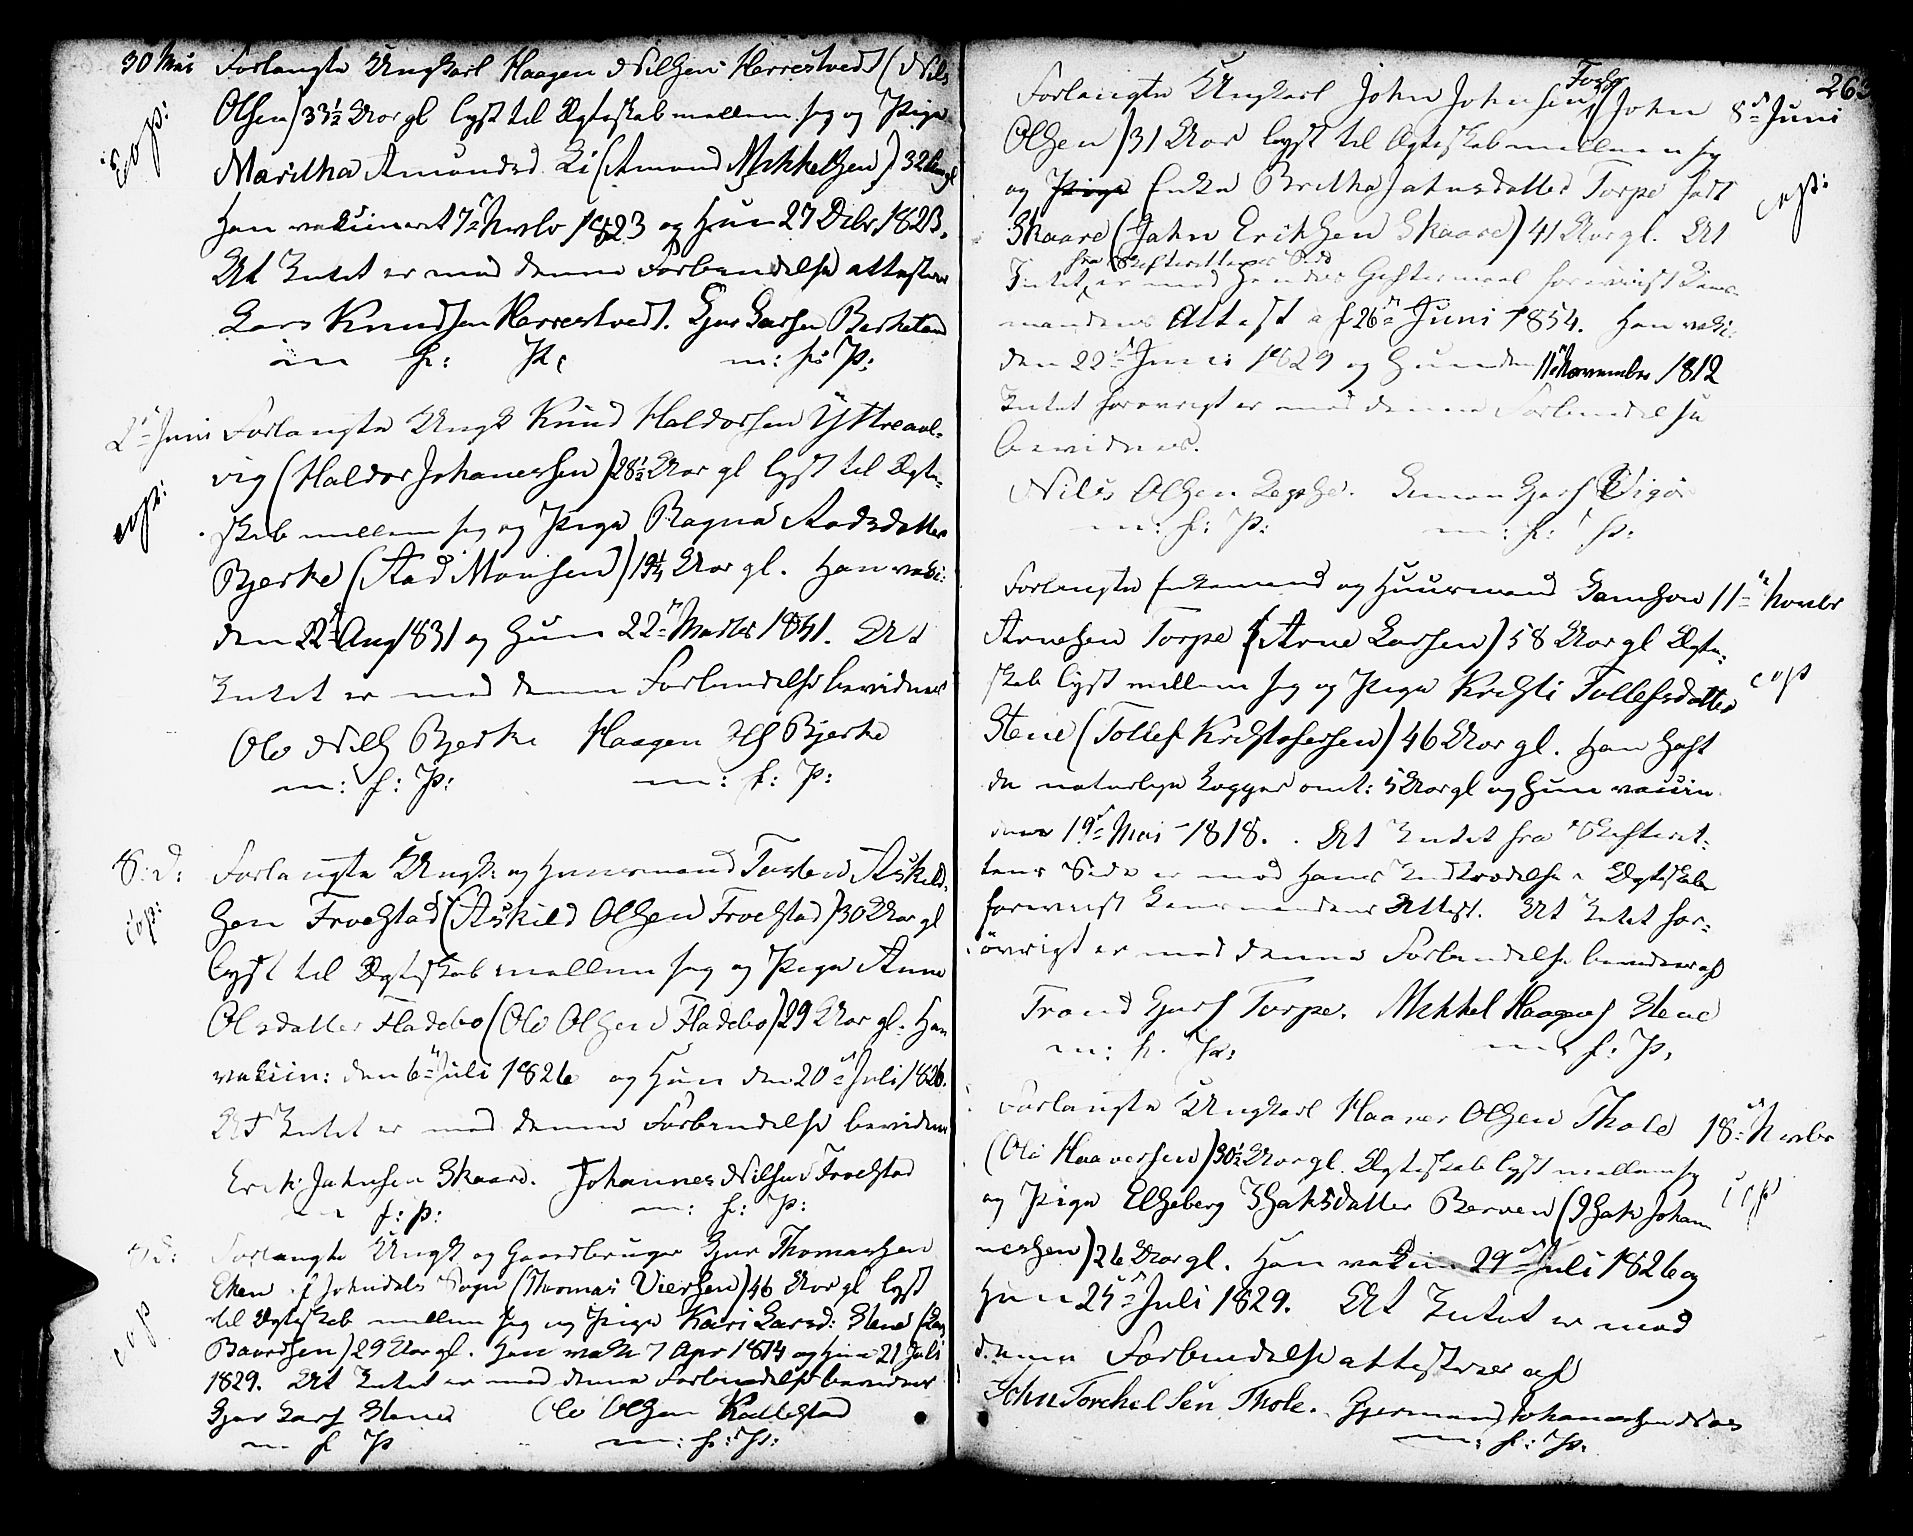 30 Mai Forlangte Ungkarl Haagen Nilsen Herrestvedt (Nils
Olsen) 33½ Aar gl lyst til Ægteskab mellem sig og Pige
cop:
Maritha Amundsd Li (Amund Mikkelsen) 32 Aar gl
Han vaksineret 7de Novbr 1823 og Hun 27 Decbr 1823.
At Intet er mod denne Forbindelse attesterer
Lars Knudsen Herrestvedt. Gjur Larsen Berketun
m f: P: m: f: P:
2den Juni Forlangte Ungk Knud Haldorsen Yttreaal-
vig (Haldor Johanessen) 28½ Aar gl lyst til Ægte-
cop:
skab mellem sig og Pige Ragna Aadsdatter
Bjerke (Aad Monsen) 19¼ Aar gl. Han vaksi:
den 22d Aug 1831 og Hun 22de Marts 1841. At
Intet er mod denne Forbindelse bevidnes
Ole Nils Bjerke Haagen Bjerke
m: f: P: m: f: P:
8: d: Forlangte Ungk: og Huusmand Torben Askild-
sen Froestad (Askild Olsen Froestad) 30 Aar gl
cop:
lyst til Ægteskab mellem sig og Pige Anne
Olsdatter Fladebo (Ole Olsen Fladebo) 29 Aar gl. Han
vaksin: den 6te Juli 1826 og Hun den 20de Juli 1826.
At Intet er mod denne Forbindelse bevidne
Erik Jahnsen Skaare. Johannes Nilsen Froestad
m f: P: m: f: P:
Forlangte Ungk og Gaardbruger Gjur Thomassen
Eken af Jondals Sogn (Thomas Viersen) 46 Aar gl lyst
til Ægteskab mellem sig og Pige Kari Larsd: Stene (Lars
cop
Baardsen) 29 Aar gl. Han vak 7 Apr 1814 og Hun 21 Juli
1829. At Intet er mod denne Forbindelse bevidner
Gjur Lars Stene Ole Olsen Rollestad
m f P m: f: P:
263
Forlangte Ungkarl John Johnsen Torpe (John 8de Juni
Olsen) 31 Aar lyst til Ægteskab mellem sig
og Enke Britha Jahnsdatter Torpe født
cop:
Skaare (Jahn Eriksen Skaare) 41 Aar gl. At
Intet fra Skifterettens Side er mod hendes Giftermaal forevist Lens-
mandens Attest af 26de Juni 1854. Han vaksi:
den 22de Juni 1829 og Hun den 11te November 1812
Intet forøvrigt er mod denne Forbindelse
bevidnes.
Nils Olsen Simon Gjers Vigør
m: f: P: m: f: P:
Forlangte Enkemand og Huusmand Samson 11te Novbr
Arnesen Torpe (Arne Larsen) 58 Aar gl Ægte-
skab lyst mellem sig og Pige Kristi Tollefsdatter
cop
Stene (Tollef Kristofersen) 46 Aar gl. Han haft
de naturlige Kopper omt: 5 Aar gl og Hun vaksin
den 19de Mai 1818. At Intet fra Skifteret-
tens Side er mod Hans Indtrædelse i Ægteskab
forevist Lensmandens Attest. At Intet for-
øvrigt er mod denne Forbindelse bevidnes af
Trond Gjers Torpe. Mikkel Haagens Stene
m: f: P: m: f: P:
Forlangte Ungkarl Haaver Olsen Thole 18de Novbr
(Ole Haaversen) 30½ Aar gl. Ægteskab lyst mellem sig
og Pige Elseberg Isaksdatter Berven (Isak Johan-
cop
nessen) 26 Aar gl. Han vaksin 29de Juli 1826 og
Hun 25de Juli 1829. At Intet er mod
denne Forbindelse attesterer af
John Torchelsen Thole. Gjermund Johannessen Næs
m: f: P: